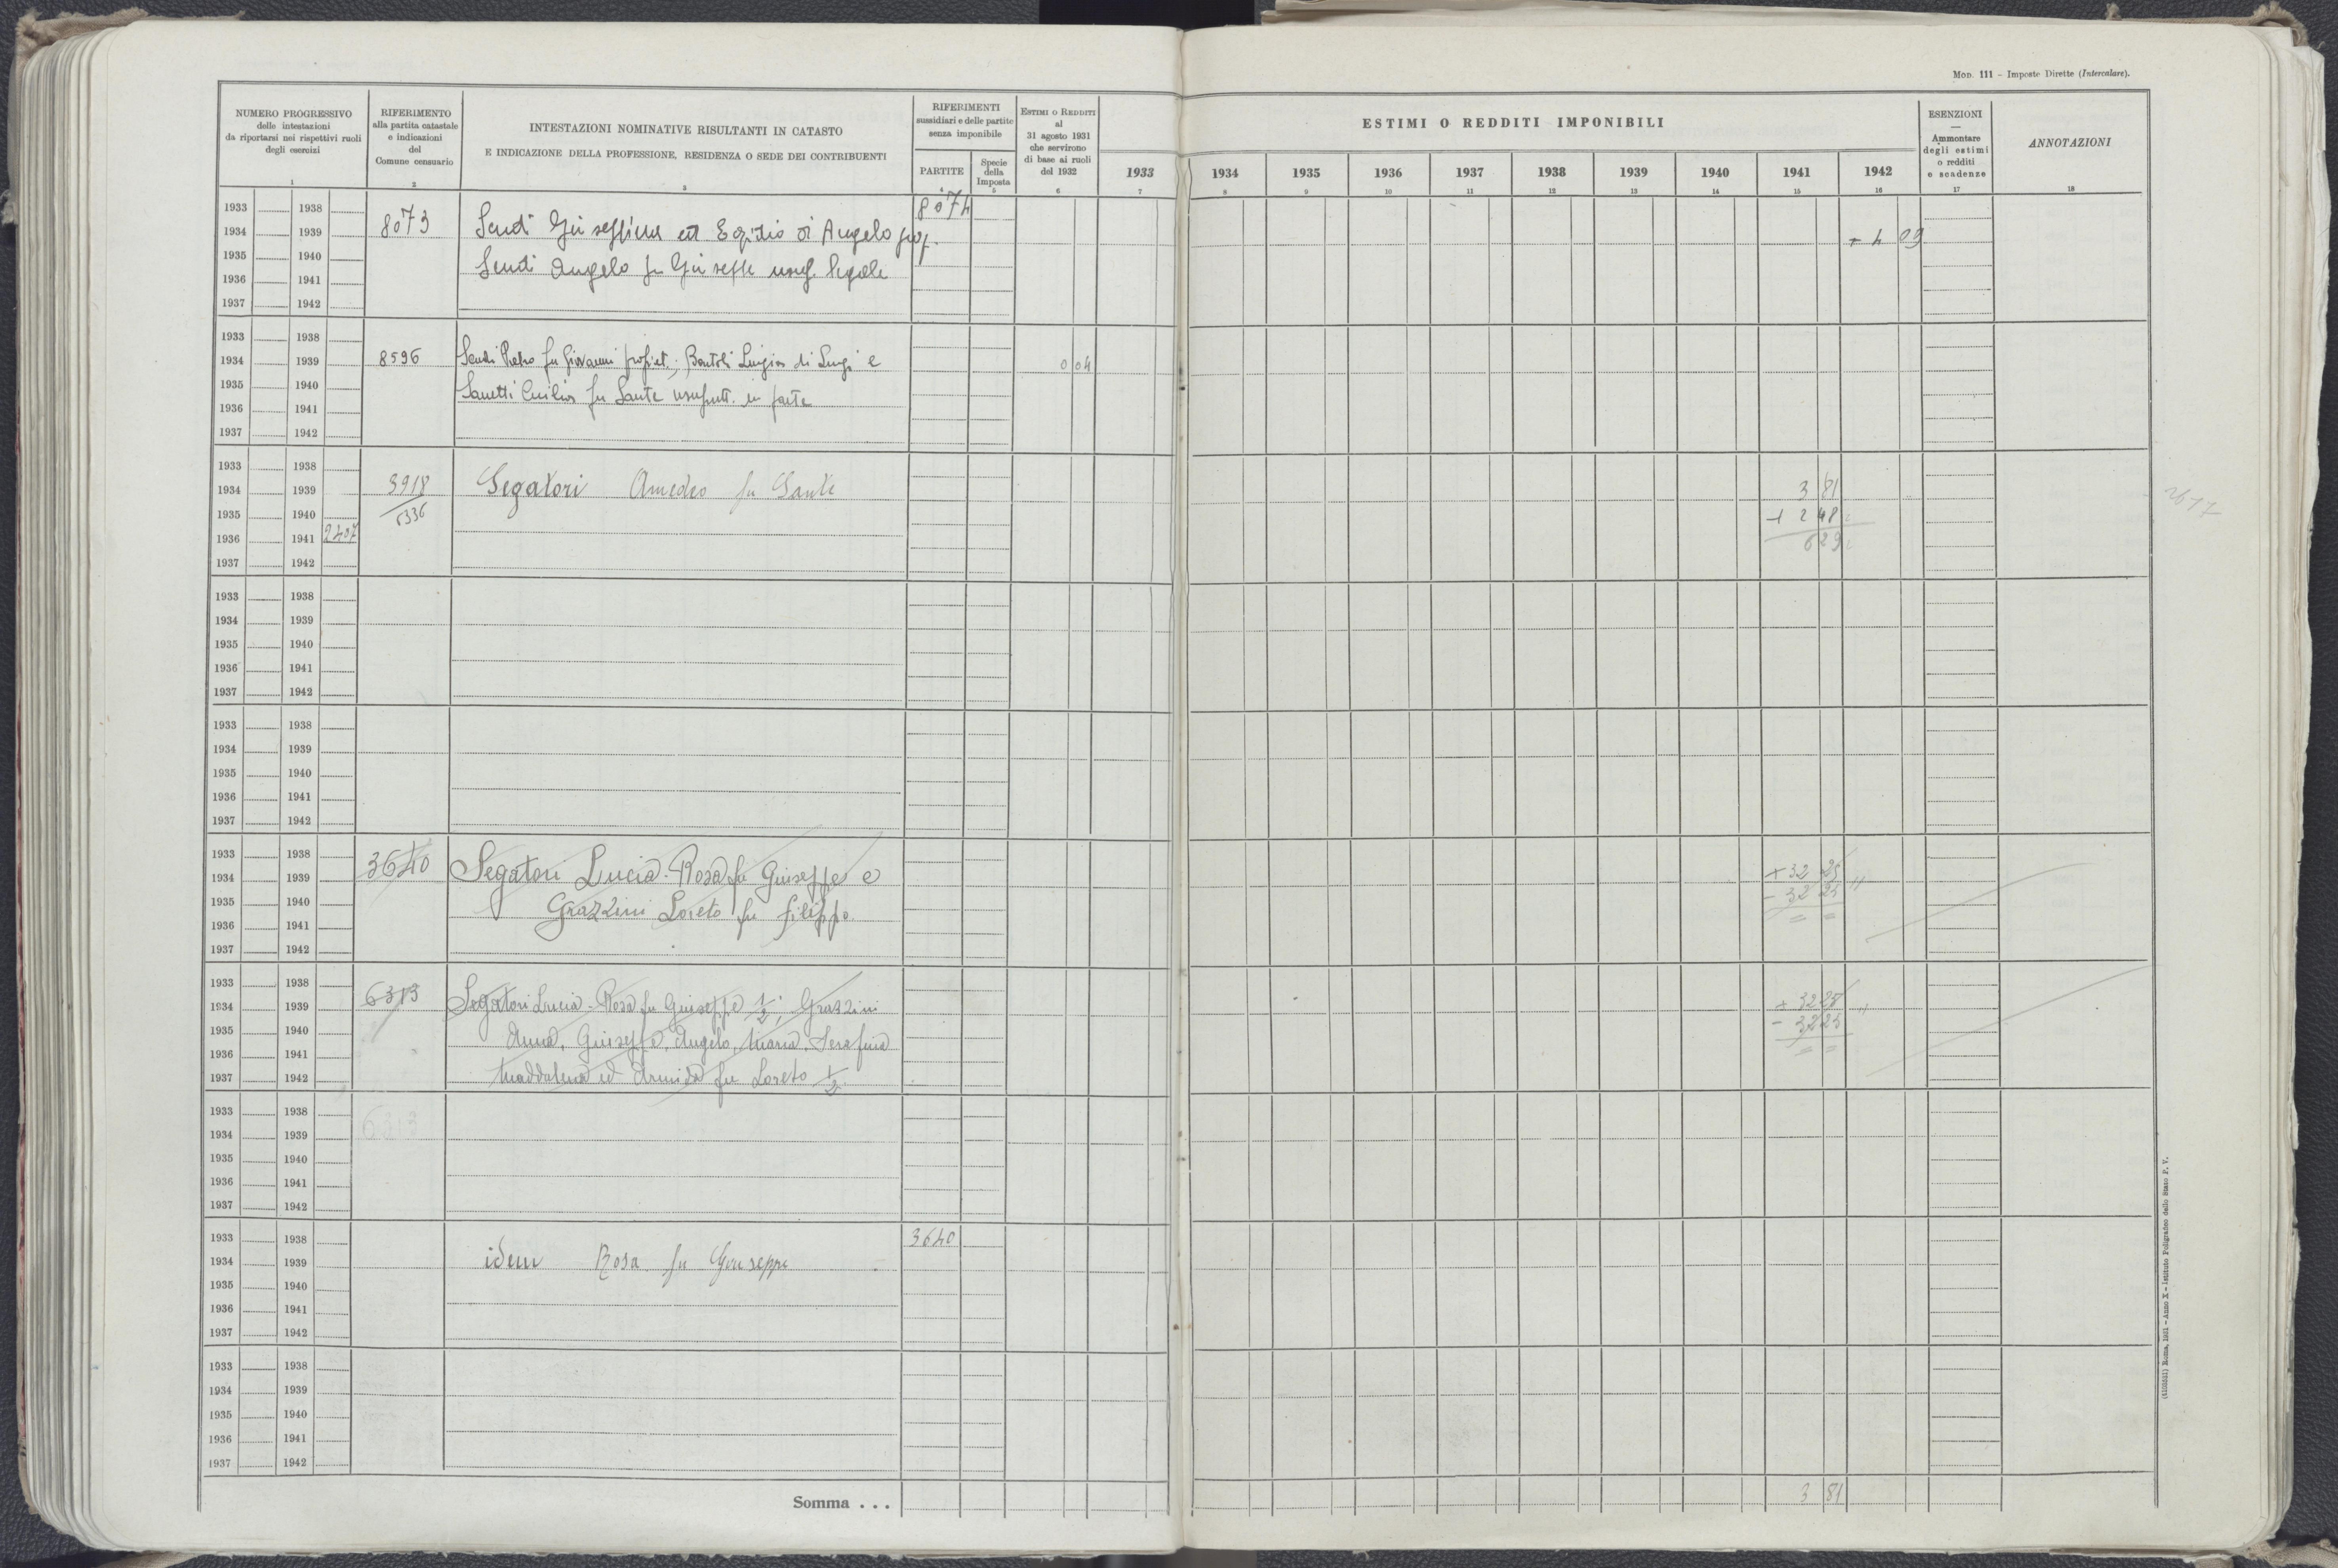 Mod. 111 – Imposte Dirette (Intercalare).
NUMERO PROGRESSIVO
delle intestazioni
da riportarsi nei rispettivi ruoli
degli esercizi
1
RIFERIMENTO
alla partita catastale
e indicazioni
del
Comune censuario
2
INTESTAZIONI NOMINATIVE RISULTANTI IN CATASTO
E INDICAZIONE DELLA PROFESSIONE, RESIDENZA O SEDE DEI CONTRIBUENTI
3
RIFERIMENTI
sussidiari e delle partite
senza imponibile
PARTITE
4
Specie
della
Imposta
5
ESTIMI O REDDITI
al
31 agosto 1931
che servirono
di base ai ruoli
del 1932
6
ESTIMI O REDDITI IMPONIBILI
1933 1934 1935 1936 1937 1938 1939 1940 1941 1942
7 8 9 10 11 12 13 14 15 16
ESENZIONI
—
Ammontare
degli estimi
o redditi
e scadenze
17
ANNOTAZIONI
18
8074
1933 1938
1934 1939 8073 Sendi Giuseppina ed Egidio di Angelo prop. + 4 09
1935 1940 Sendi Angelo fu Giuseppe usuf. legale
1936 1941
1937 1942
1933 1938
1934 1939 8596 Sendi Pietro fu Giovanni propriet.; Bartoli Luigia di Luigi e 0 04
1935 1940 fu Sante usufrutt. in parte
1936 1941
1937 1942
1933 1938
1934 1939 3918 Segatori Amedeo fu Sante 3 81
1935 1940 6336 + 2 48
1936 1941 2407 6 29
1937 1942
1933 1938
1934 1939
1935 1940
1936 1941
1937 1942
1933 1938
1934 1939
1935 1940
1936 1941
1937 1942
1933 1938 3640 Segatori Lucia-Rosa fu Giuseppe e + 32 25
1934 1939 - 32 25 "
1935 1940 Grazzini Loreto fu Filippo. = =
1936 1941
1937 1942
1933 1938 6313
1934 1939 Segatori Lucia-Rosa fu Giuseppe 1/2; Grazzini + 32 25 "
1935 1940 Anna, Giuseppe, Angelo, Maria, Serafina - 32 25
1936 1941 = =
1937 1942 Maddalena ed Armida fu Loreto 1/2.
1933 1938 6313
1934 1939
1935 1940
1936 1941
1937 1942
1933 1938 3640
1934 1939 idem Rosa fu Giuseppe
1935 1940
1936 1941
1937 1942
1933 1938
1934 1939
1935 1940
1936 1941
1937 1942
Somma . . . 3 81
(4103531) Roma, 1931 – Anno X – Istituto Poligrafico dello Stato P. V.